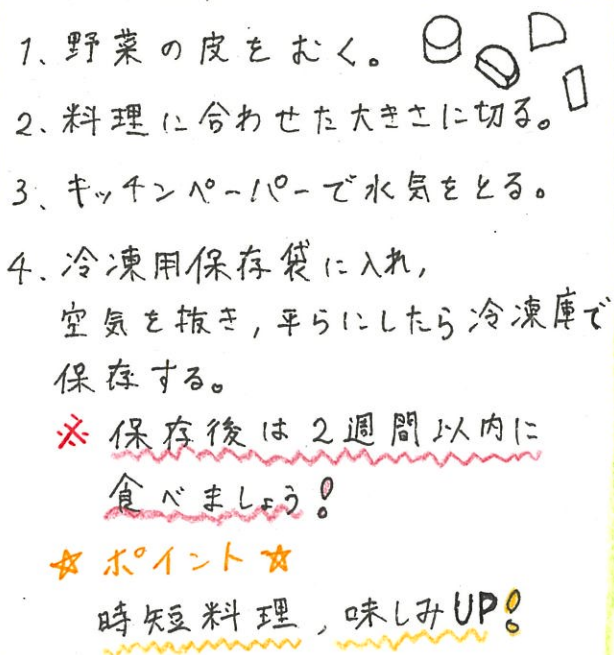 1、野菜の皮をむく。
2、料理に合わせた大きさに切る。
3、キッチンペーパーで水気をとる。
4、冷凍用保存袋に入れ,
空気を抜き,平らにしたら冷凍庫で
保存する。
※ 保存後は2週間以内に
食べましょう!
☆ ポイント ☆
時短料理,味しみUP!